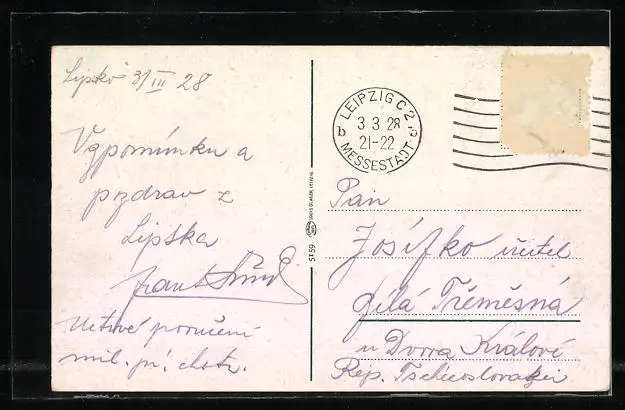 Lipsko 3/III 28
Vzpomínku a
pozdrav z
Lipska
Uctivé poručení
mil. pí. choti.
LEIPZIG C 2
b b
3 3 28
21-22
MESSESTADT
ST 59
Pan
Josífko učitel
Bílá Třemešná
u Dvora Králové
Rep. Tschecoslovakei